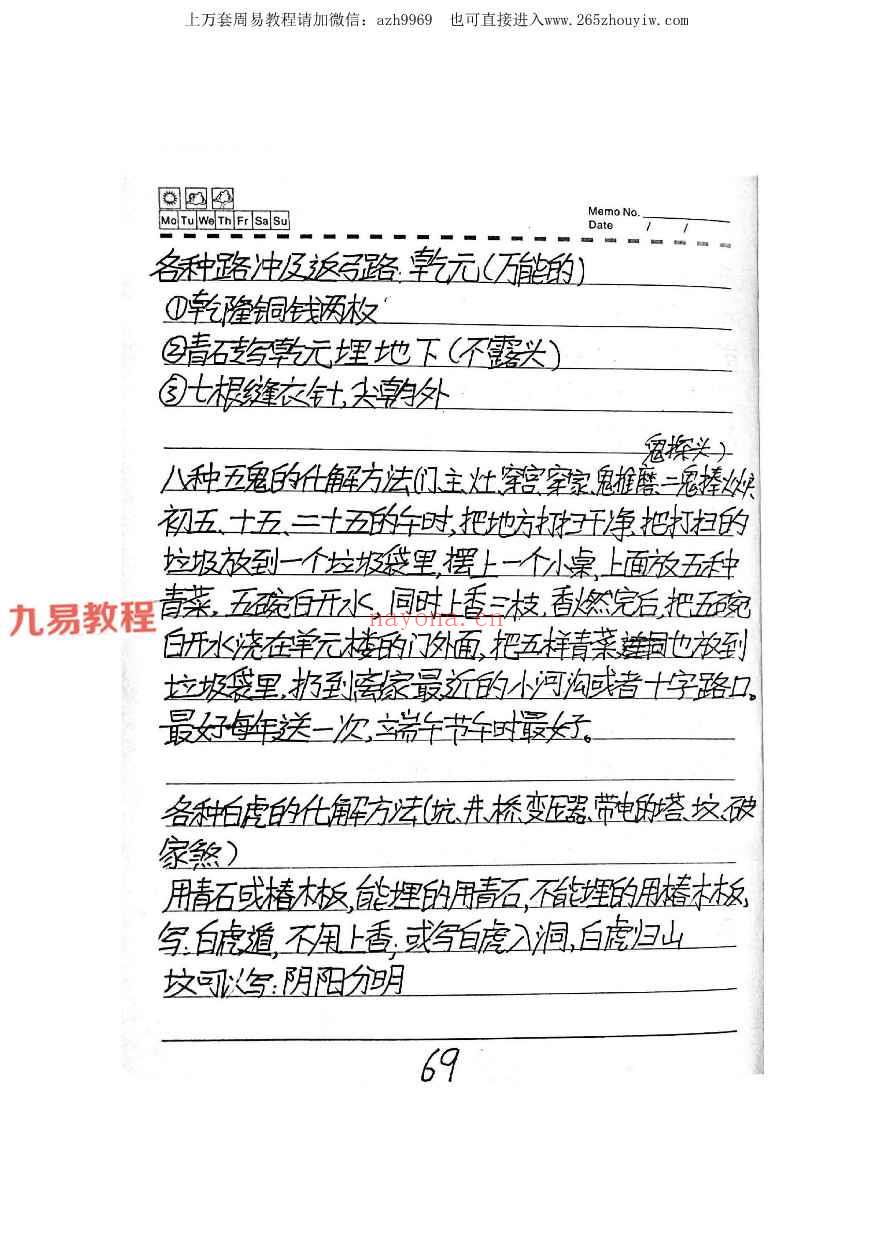 上万套周易教程请加微信：azh9969 也可直接进入www.265zhouyiw.com
Mo Tu We Th Fr Sa Su
Memo No.
Date / /
各种路冲及返弓路：乾元（万能的）
①乾隆铜钱两枚
②青石写乾元埋地下（不露头）
③七根缝衣针，尖朝外
鬼探头）
八种五鬼的化解方法（门、主、灶、穿宫、穿家、鬼推磨、二鬼捧
初五、十五、二十五的午时，把地方打扫干净，把打扫的
垃圾放到一个垃圾袋里，摆上一个小桌，上面放五种
青菜，五碗白开水，同时上香三枝，香燃完后，把五碗
白开水浇在单元楼的门外面，把五样青菜也放到
垃圾袋里，扔到离家最近的小河沟或者十字路口。
最好每年送一次，端午节午时最好。
九易教程
nayona.cn
各种白虎的化解方法（坑、井、桥、变压器、带电的塔、坟、破
家煞）
用青石或椿木板，能埋的用青石，不能埋的用椿木板，
写：白虎遁，不用上香；或写白虎入洞，白虎归山
坟可以写：阴阳分明
69